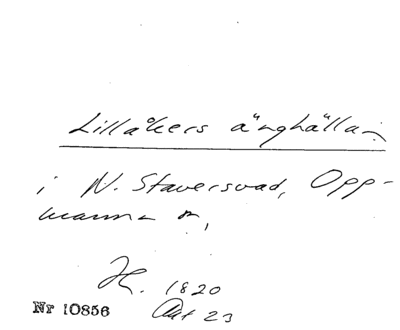 Lillåkers änghälla
i N. Staversvad, Opp-
manna sn,
H. 1820
23
Nr 10856